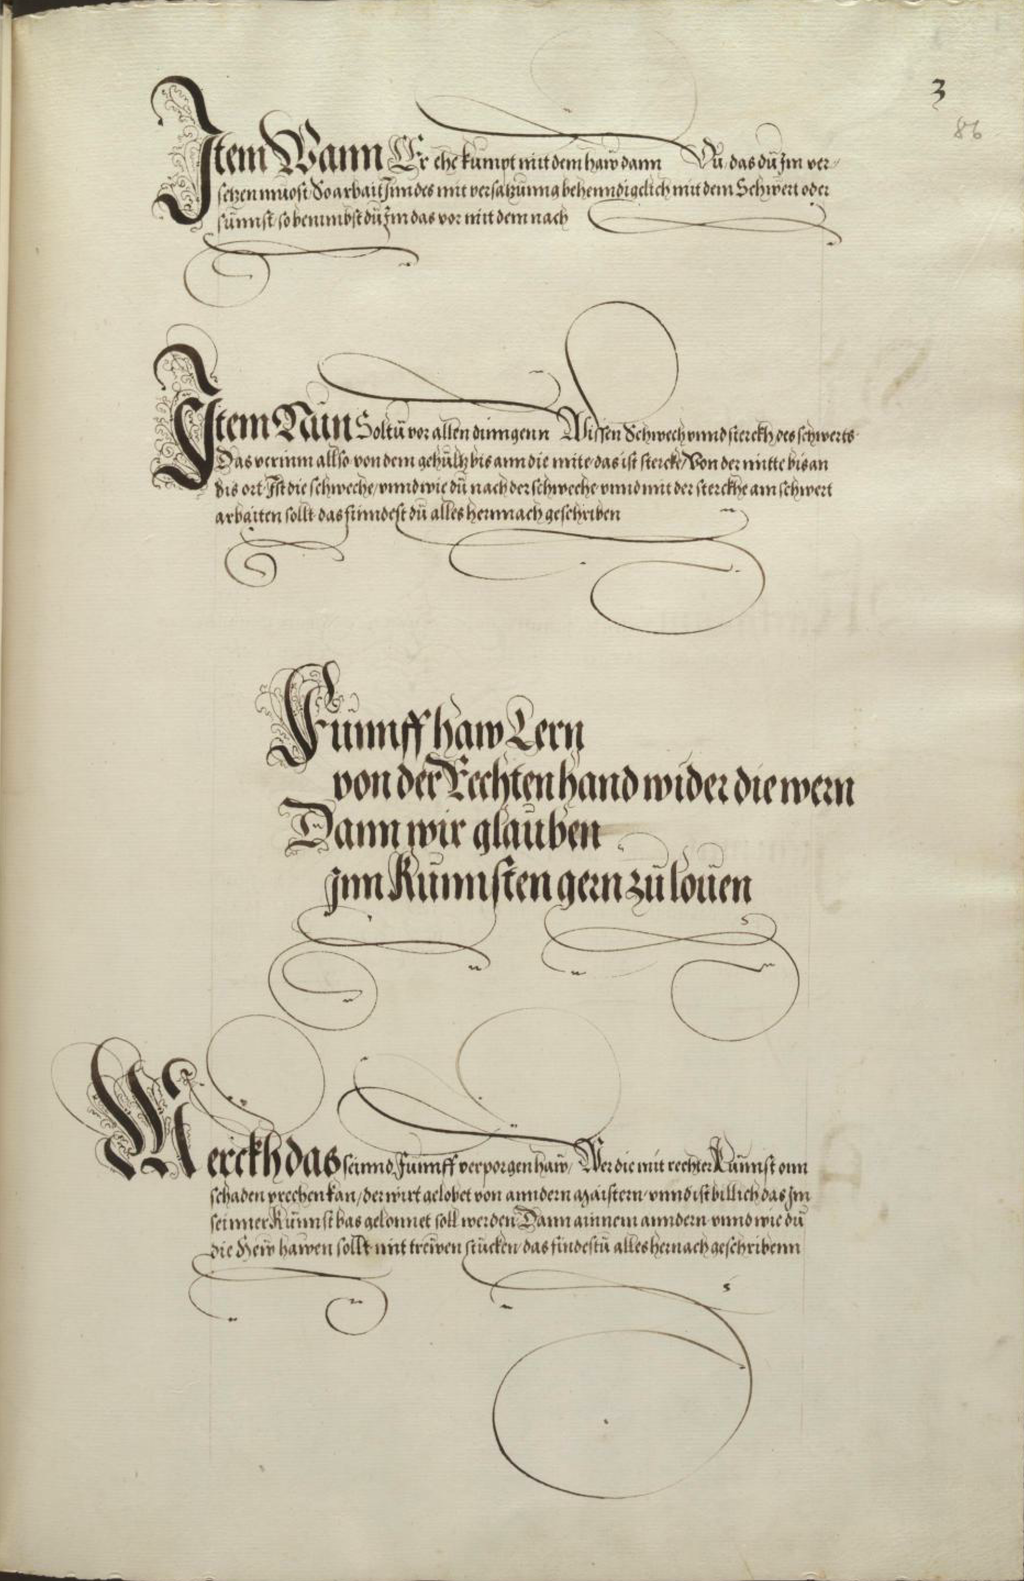 3
86
Item Wann Er ehe kumpt mit dem haw dann Du, das dü Im ver-
setzen muost So arbait Inndes mit versatzünng behenndigclich mit dem Schwert oder
sünnst, so benimbst dü Im das vor mit dem nach
Item Nün Soltü vor allen dinngenn Wissen Schwech vnnd sterckh des schwerts
Das vernim allso von dem gehültz bis ann die mite, das ist stercke, Von der mitte bis an
dis ort, Ist die schweche, vnnd wie dü nach der schweche vnnd mit der sterckhe am schwert
arbaiten sollt das finndest dü alles hernnach geschriben
Fünnff haw Lern
von der Rechten hand wider die wern
Dann wir glauben
Inn Künnsten gern zü loüen
Merckh das seinnd Fünnff verporgen haw, Wer die mit rechter Künnst onn
schaden prechen kan, der wirt gelobet von anndern maistern, vnnd ist billich das Im
seinner Künnst bas gelonnet soll werden Dann ainnem anndern vnnd wie dü
die Hew hawen sollt mit trewen stücken das findestü alles hernach geschribenn